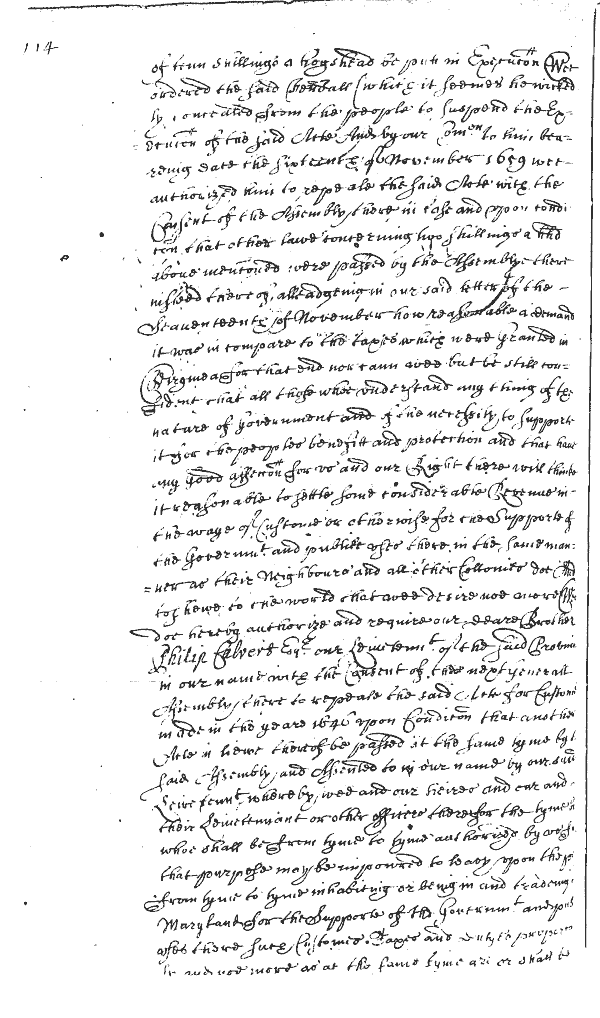 114
of tenn shillings a hogshead be putt in Execucon Wee
ordered the said Fendall (which it seemes he wicked
ly concealed from the people to suspend the Ex-
ecucon of the said Acte And by our Comon to him bea-
reing date the sixteenth of November 1659 wee
authorized him to repeale the said Acte with the
Consent of the Assembly there in case and upon condi
con that other lawe concerning two shillings a hhd
above mentoned were passed by the Assembly there
insteed thereof, alleadgeing in our said letter of the
Seaventeenth of November how reasonable a demand
it was in compare to the taxes which were granted in
Virginea for that end nor cann wee but be still con-
fident that all those whoe understand any thing of the
nature of government and of the necessity to supporte
it for the peoples benefitt and protection and that have
any good affeccon for us and our Right there will thinke
it reasonable to settle some considerable Revenue in
the waye of Custome or otherwise for the Supporte of
the Governmt and publike uses there in the same man-
ner as their Neighbours and all other Collonies doe And
to shewe to the world that wee desire noe more Wee
doe hereby authorize and require our deare Brother
Philip Calvert Esqr our Leivetennt of the said Province
in our name with the Consent of the next generall
Assembly there to repeale the said Acte for Customs
made in the yeare 1646 upon Condicon that another
Acte in liewe thereof be passed at the same tyme by the
said Assembly, and Assented to in our name by our said
Leivetennt whereby wee and our heires and our and
their Leivetennant or other officers there for the tyme
whoe shall be from tyme to tyme authorized by us for
that purpose may be impowred to leavy upon the
from tyme to tyme inhabiting or being in and tradeing
Maryland for the Supporte of the Governmt and
uses there such Customes Taxes and dutyes
and noe more as at the same tyme are or shall be